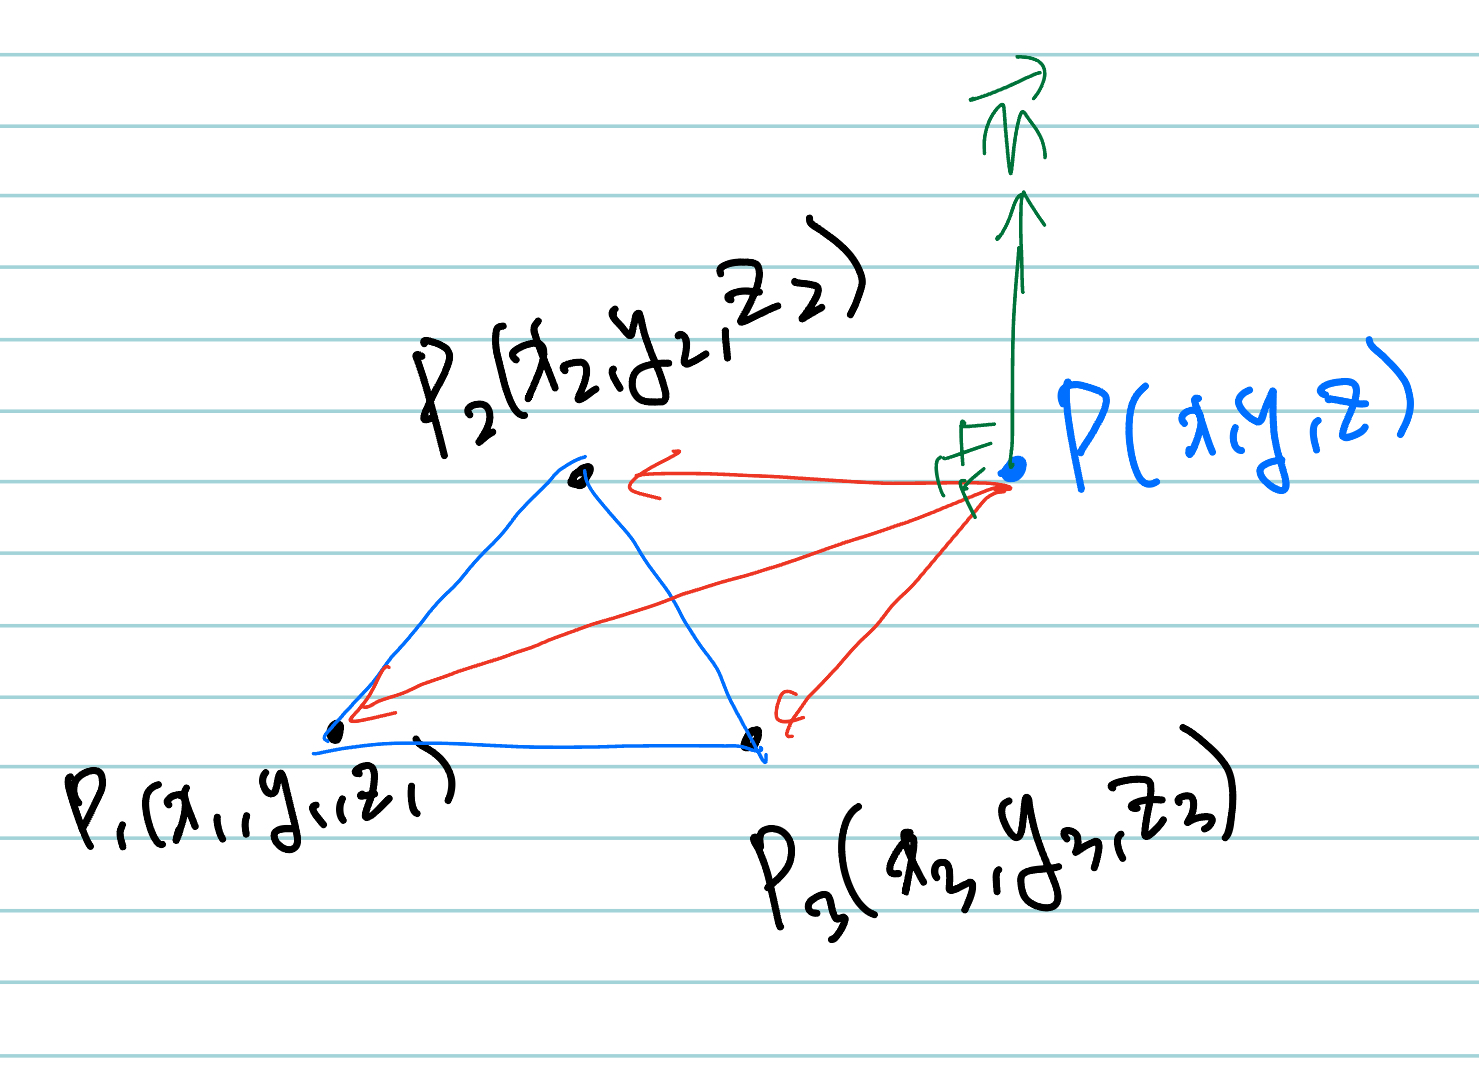 P₂(x₂,y₂,z₂)
P(x,y,z)
P₁(x₁,y₁,z₁)
P₃(x₃,y₃,z₃)